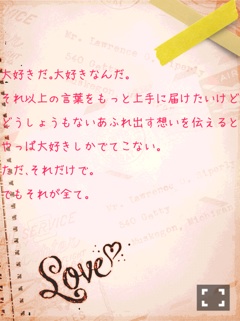 大好きだ。大好きなんだ。
それ以上の言葉をもっと上手に届けたいけど
どうしようもないあふれ出す想いを伝えると
やっぱ大好きしかでてこない。
ただ、それだけで。
でもそれが全て。
Love